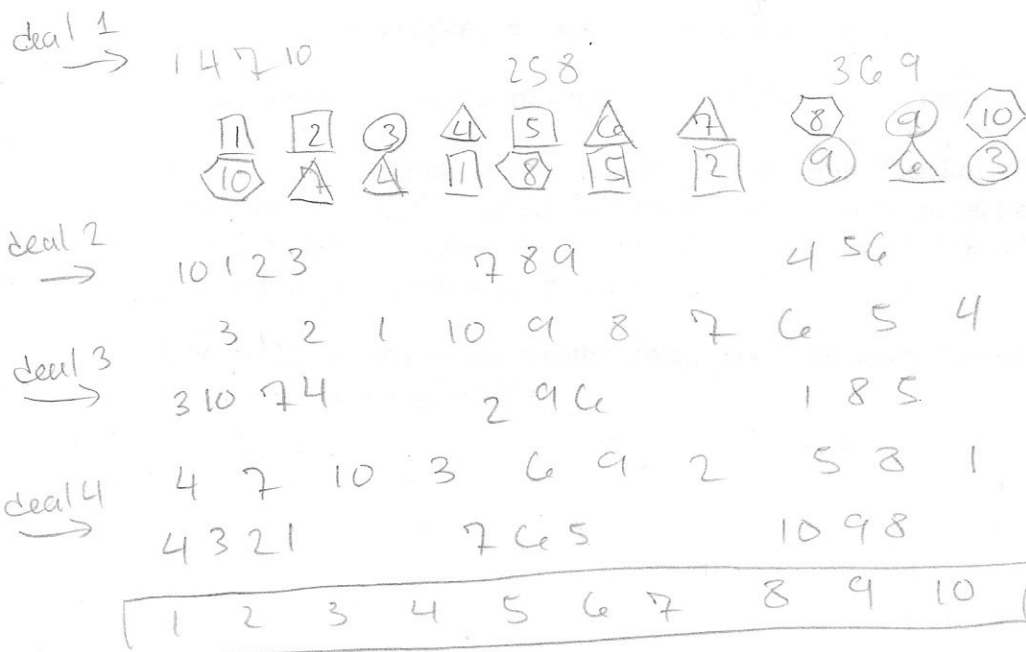 deal 1
1 4 7 10 2 5 8 3 6 9
1 2 3 4 5 6 7 8 9 10
10 7 4 1 8 5 2 9 6 3
deal 2
10 1 2 3 7 8 9 4 5 6
3 2 1 10 9 8 7 6 5 4
deal 3
3 10 7 4 2 9 6 1 8 5
4 7 10 3 6 9 2 5 8 1
deal 4
4 3 2 1 7 6 5 10 9 8
1 2 3 4 5 6 7 8 9 10